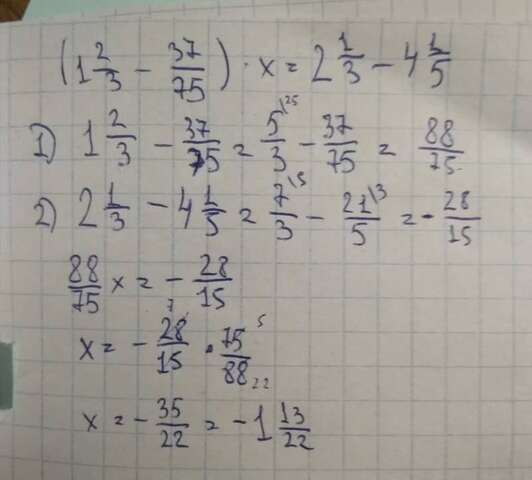 (1 2/3 - 37/75) · x = 2 1/3 - 4 1/5
1) 1 2/3 - 37/75 = 5/3 \25 - 37/75 = 88/75
2) 2 1/3 - 4 1/5 = 7/3 \5 - 21/5 \3 = - 28/15
88/75 x = - 28/15
x = - 28/15 7 · 75/88 5 22
x = - 35/22 = -1 13/22